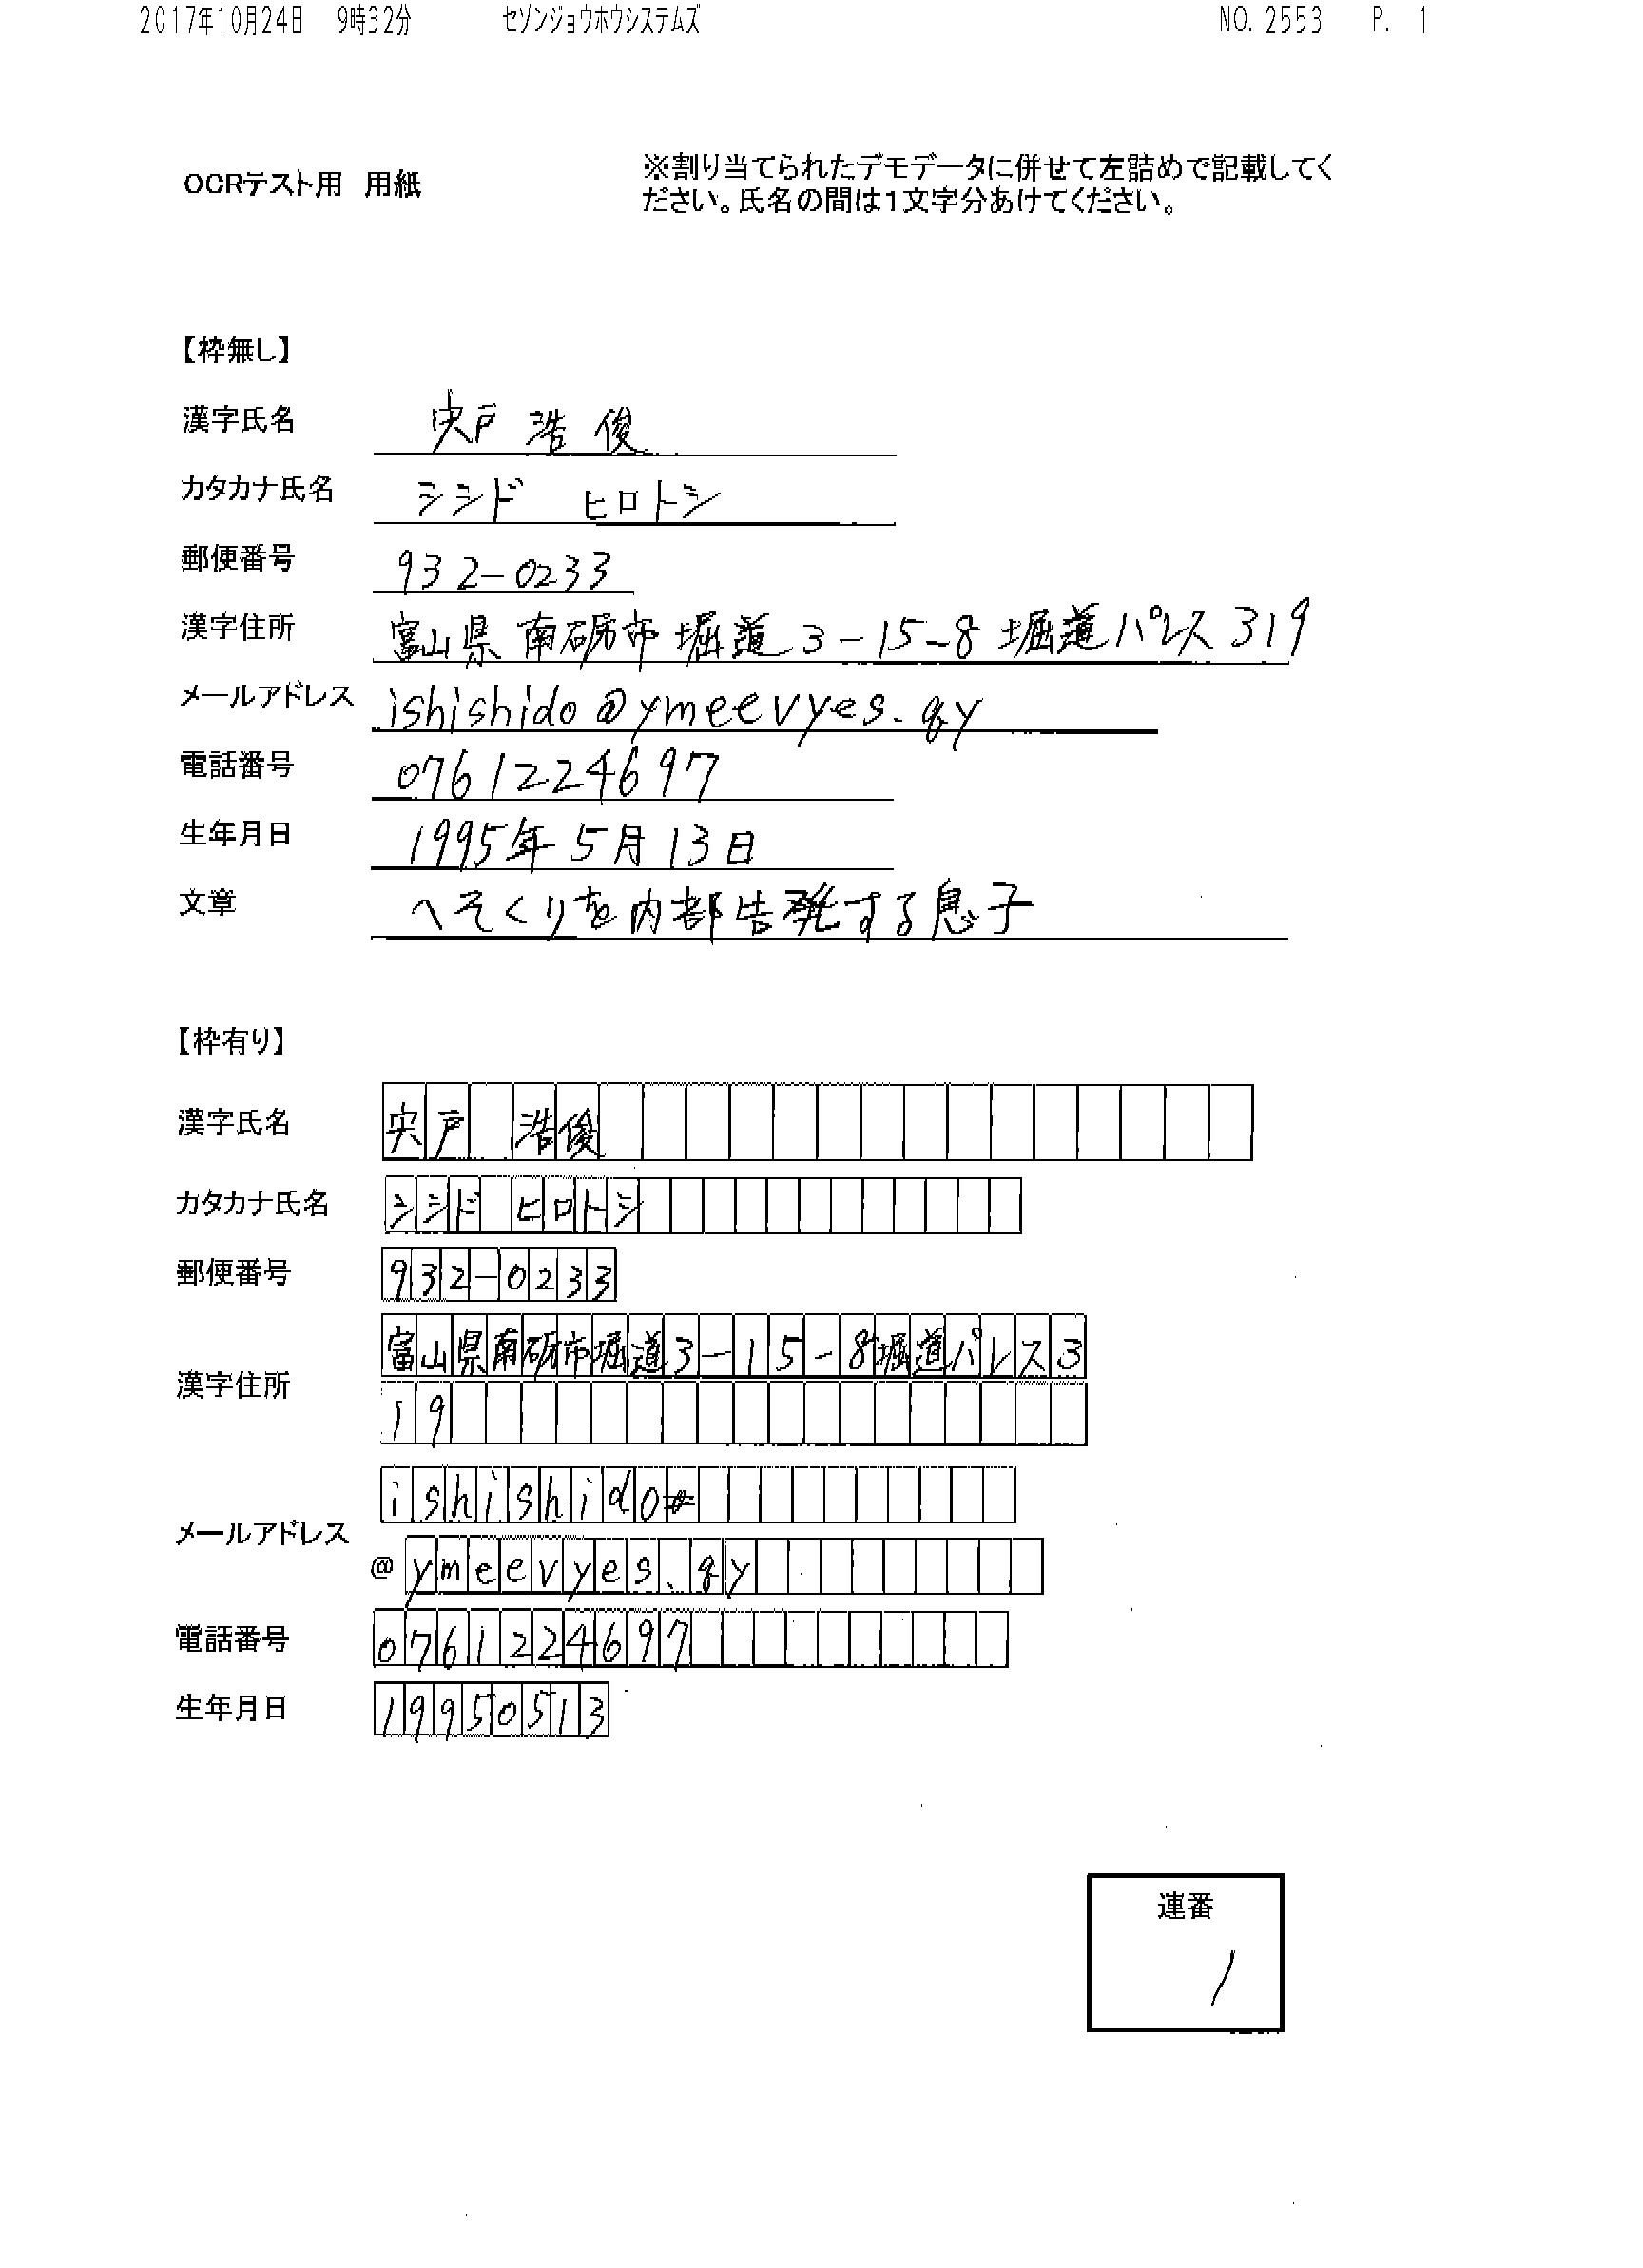 2017年10月24日 9時32分 セゾンジョウホウシステムズ NO. 2553 P. 1
OCRテスト用 用紙
※割り当てられたデモデータに併せて左詰めで記載してく
ださい。氏名の間は1文字分あけてください。
【枠無し】
漢字氏名 宍戸 浩俊
カタカナ氏名 シシド ヒロトシ
郵便番号 932-0233
漢字住所 富山県南砺市堀道3-15-8堀道パレス319
メールアドレス ishishido@ymeevyes.gy
電話番号 0761224697
生年月日 1995年5月13日
文章 へそくりを内部告発する息子
【枠有り】
漢字氏名 宍戸 浩俊
カタカナ氏名 シシド ヒロトシ
郵便番号 932-0233
漢字住所 富山県南砺市堀道3-15-8堀道パレス3
19
メールアドレス ishishido
@ymeevyes.gy
電話番号 0761224697
生年月日 19950513
連番
1